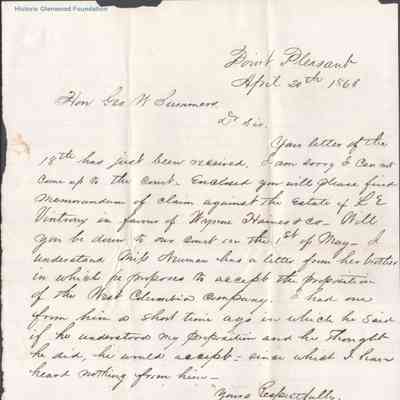 Historic Glenwood Foundation
Point Pleasant
April 20th 1868
Hon Geo W Summers
Dr Sir.
Your letter of the
18th has just been received. I am sorry I can not
come up to the court. Enclosed you will please find
Memorandum of claim against the Estate of L E
in favor of Wynne Haines & co. Will
you be down to our court on the 1st of May. I
understand Miss Newman has a letter from her brother
in which he proposes to accept the proposition
of the West Columbia Company. I had one
from him a short time ago in which he said
if he understood my proposition and he thought
he did, he would accept. since what I have
heard nothing from him—
Yours Respectfully.